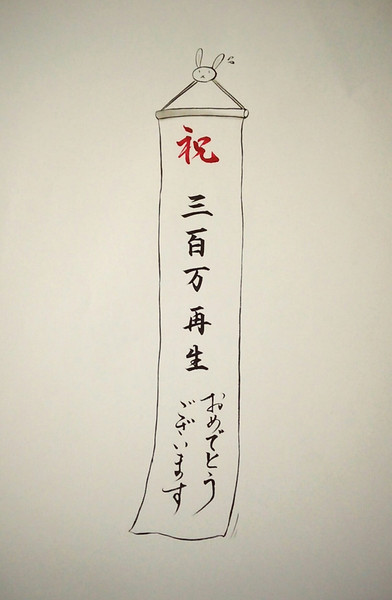 祝
三百万再生
おめでとう
ございます